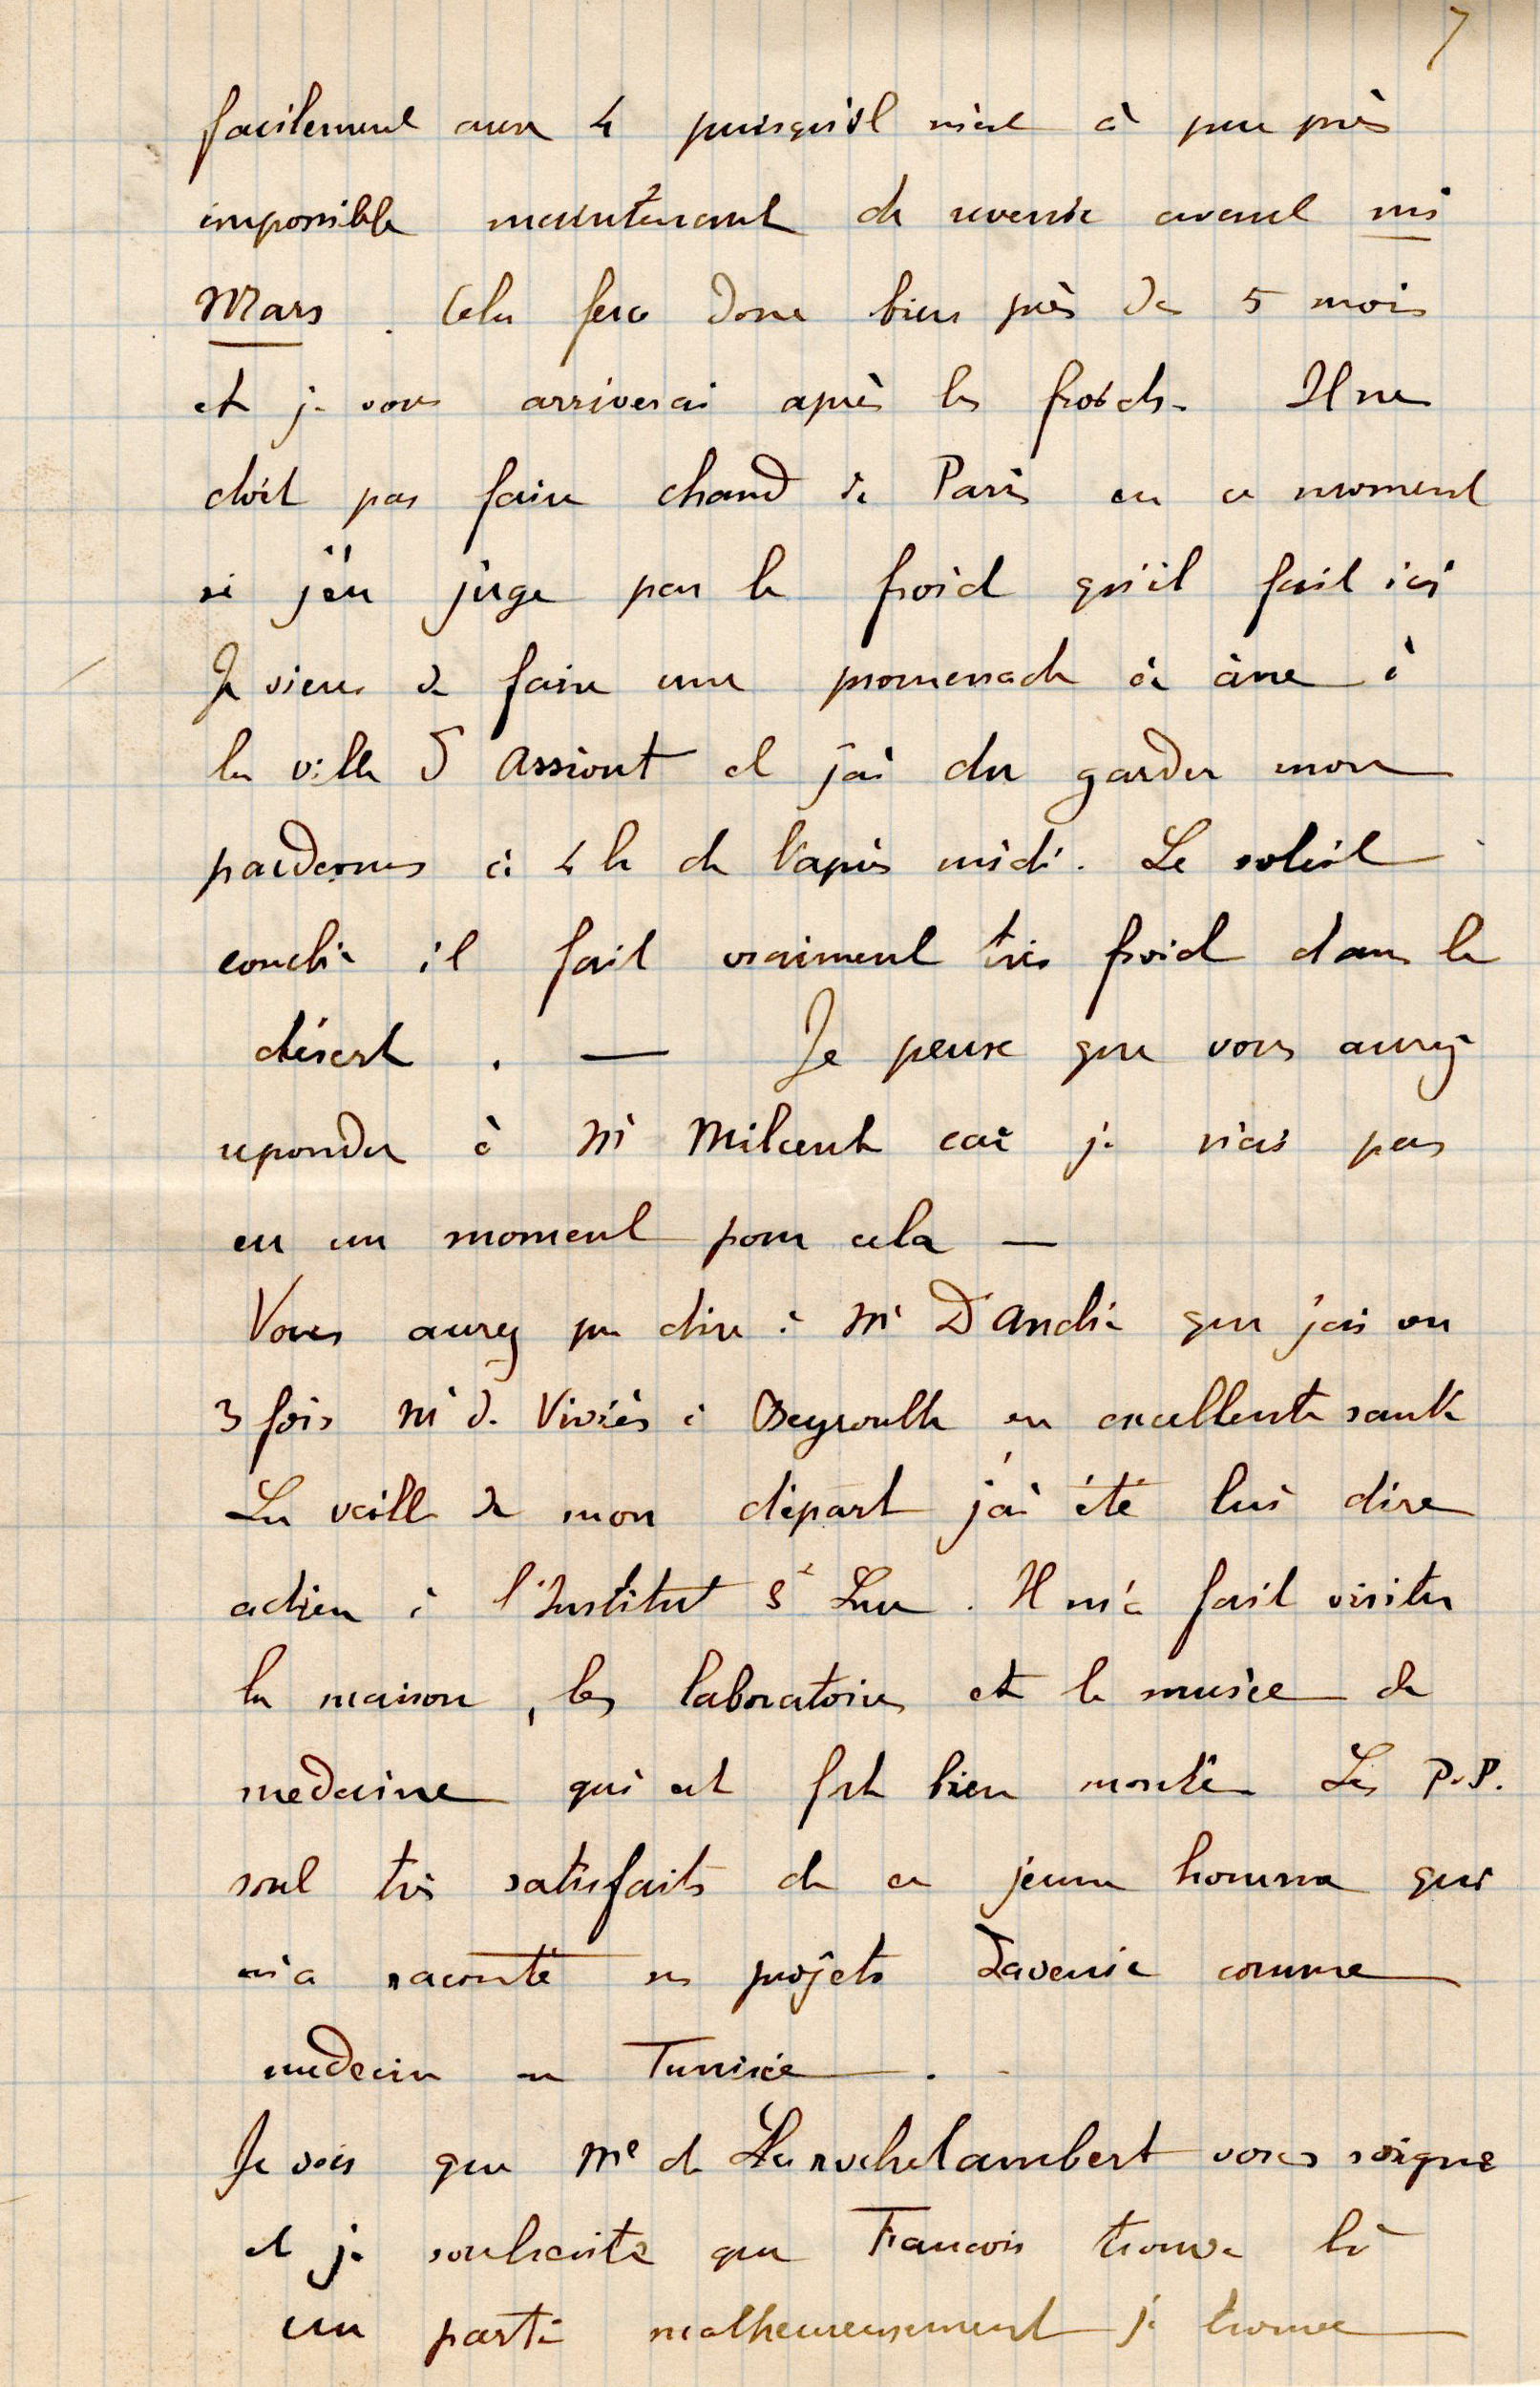 7
facilement aux 4 puisqu'il m'est à peu près
impossible maintenant de revenir avant mi
Mars. Cela fera donc bien près de 5 mois
et je vous arriverai après les froids. Il ne
doit pas faire chaud à Paris en ce moment
si j'en juge par le froid qu'il fait ici
Je viens de faire une promenade à âne à
la ville d'Assiout et j'ai du garder mon
pardessus à 4 h de l'après midi. Le soleil
couché il fait vraiment très froid dans le
désert. — Je pense que vous aurez
repondu à Mr Milcent car je n'ai pas
eu un moment pour cela —
Vous aurez pu dire à Mr D'André que j'ai vu
3 fois Mr de Viviès à Beyrouth en excellente santé
La veille de mon départ j'ai été lui dire
adieu à l'Institut St Luc. Il m'a fait visiter
la maison, les laboratoires et le musée de
medecine qui est fort bien monté. Les P.P.
sont très satisfaits de ce jeune homme qui
m'a raconté ses projets d'avenir comme
medecin en Tunisie.
Je vois que Me de Larochelambert vous soigne
et je souhaite que Francois trouve là
un parti malheureusement je trouve